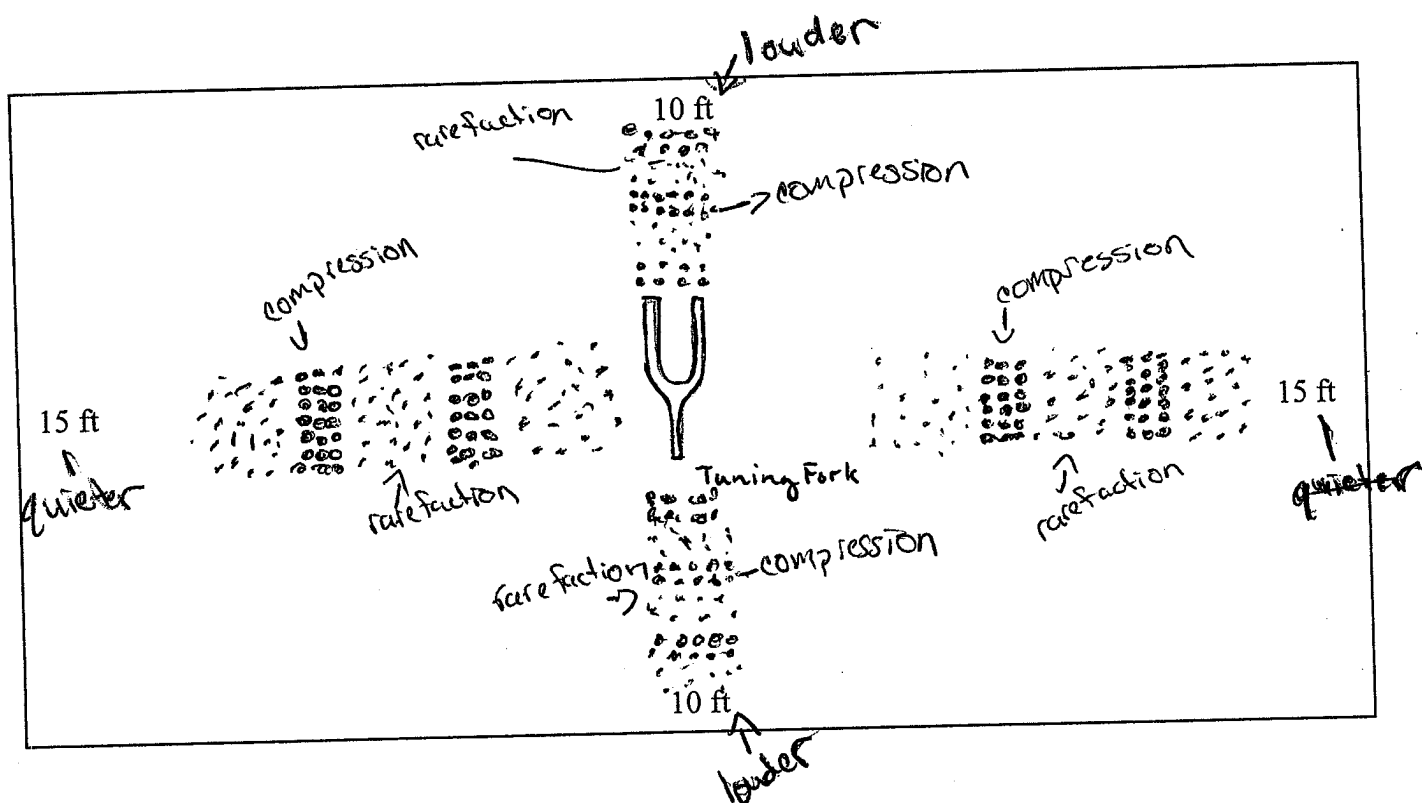 louder
10 ft
rarefaction
compression
compression
compression
15 ft
quieter
rarefaction
15 ft
quieter
rarefaction
Tuning Fork
rarefaction
compression
10 ft
louder